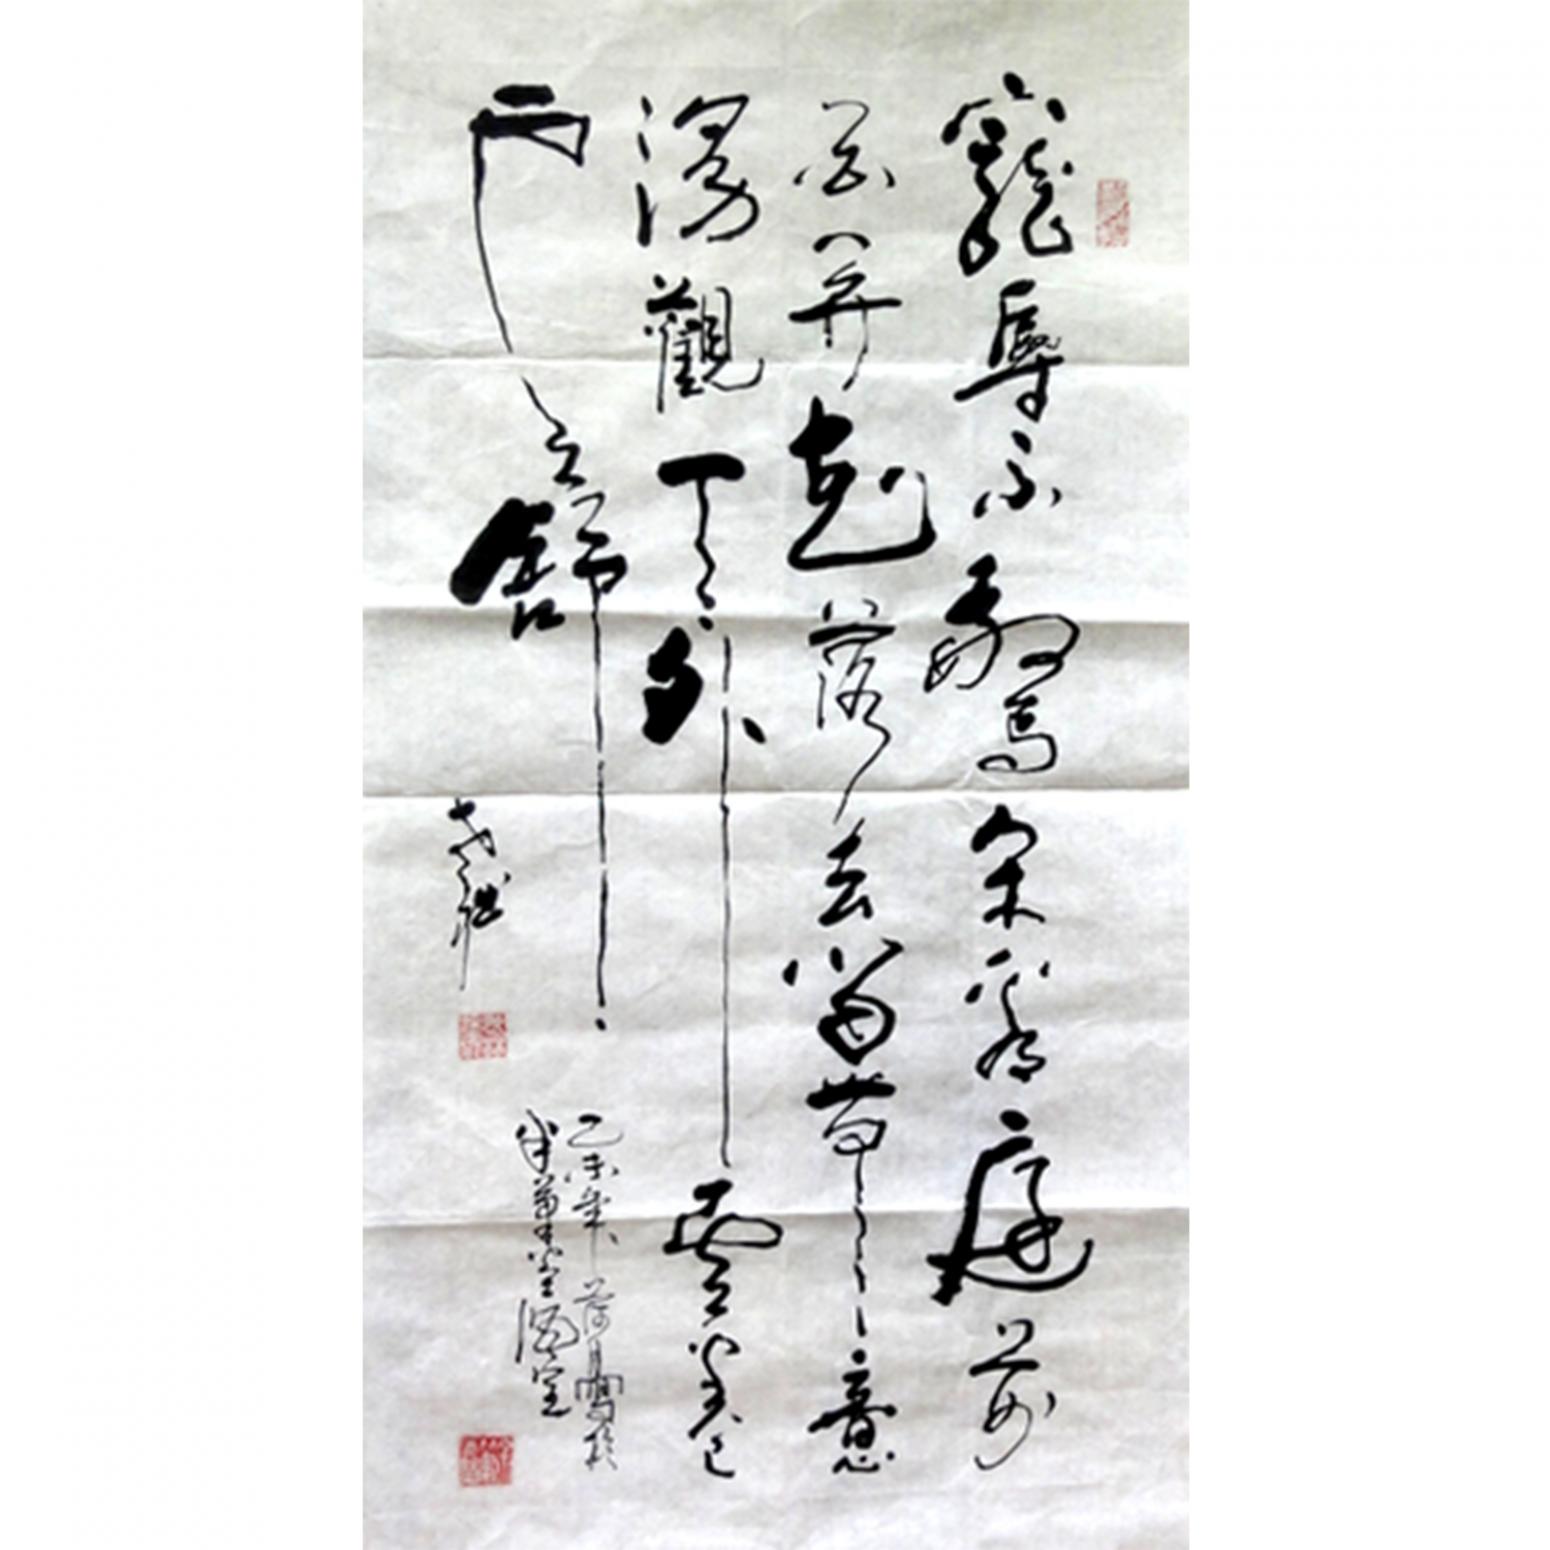 寵辱不驚閑看庭前
花開花落去留無意
漫觀天外雲卷
雲舒
乙未年荷月寫於